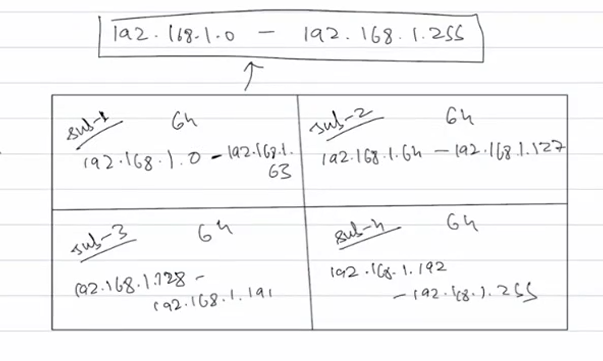 192.168.1.0 - 192.168.1.255
sub-1 64
192.168.1.0 - 192.168.1.
63
sub-2 64
192.168.1.64 - 192.168.1.127
sub-3 64
192.168.1.128 -
192.168.1.191
sub-4 64
192.168.1.192
- 192.168.1.255